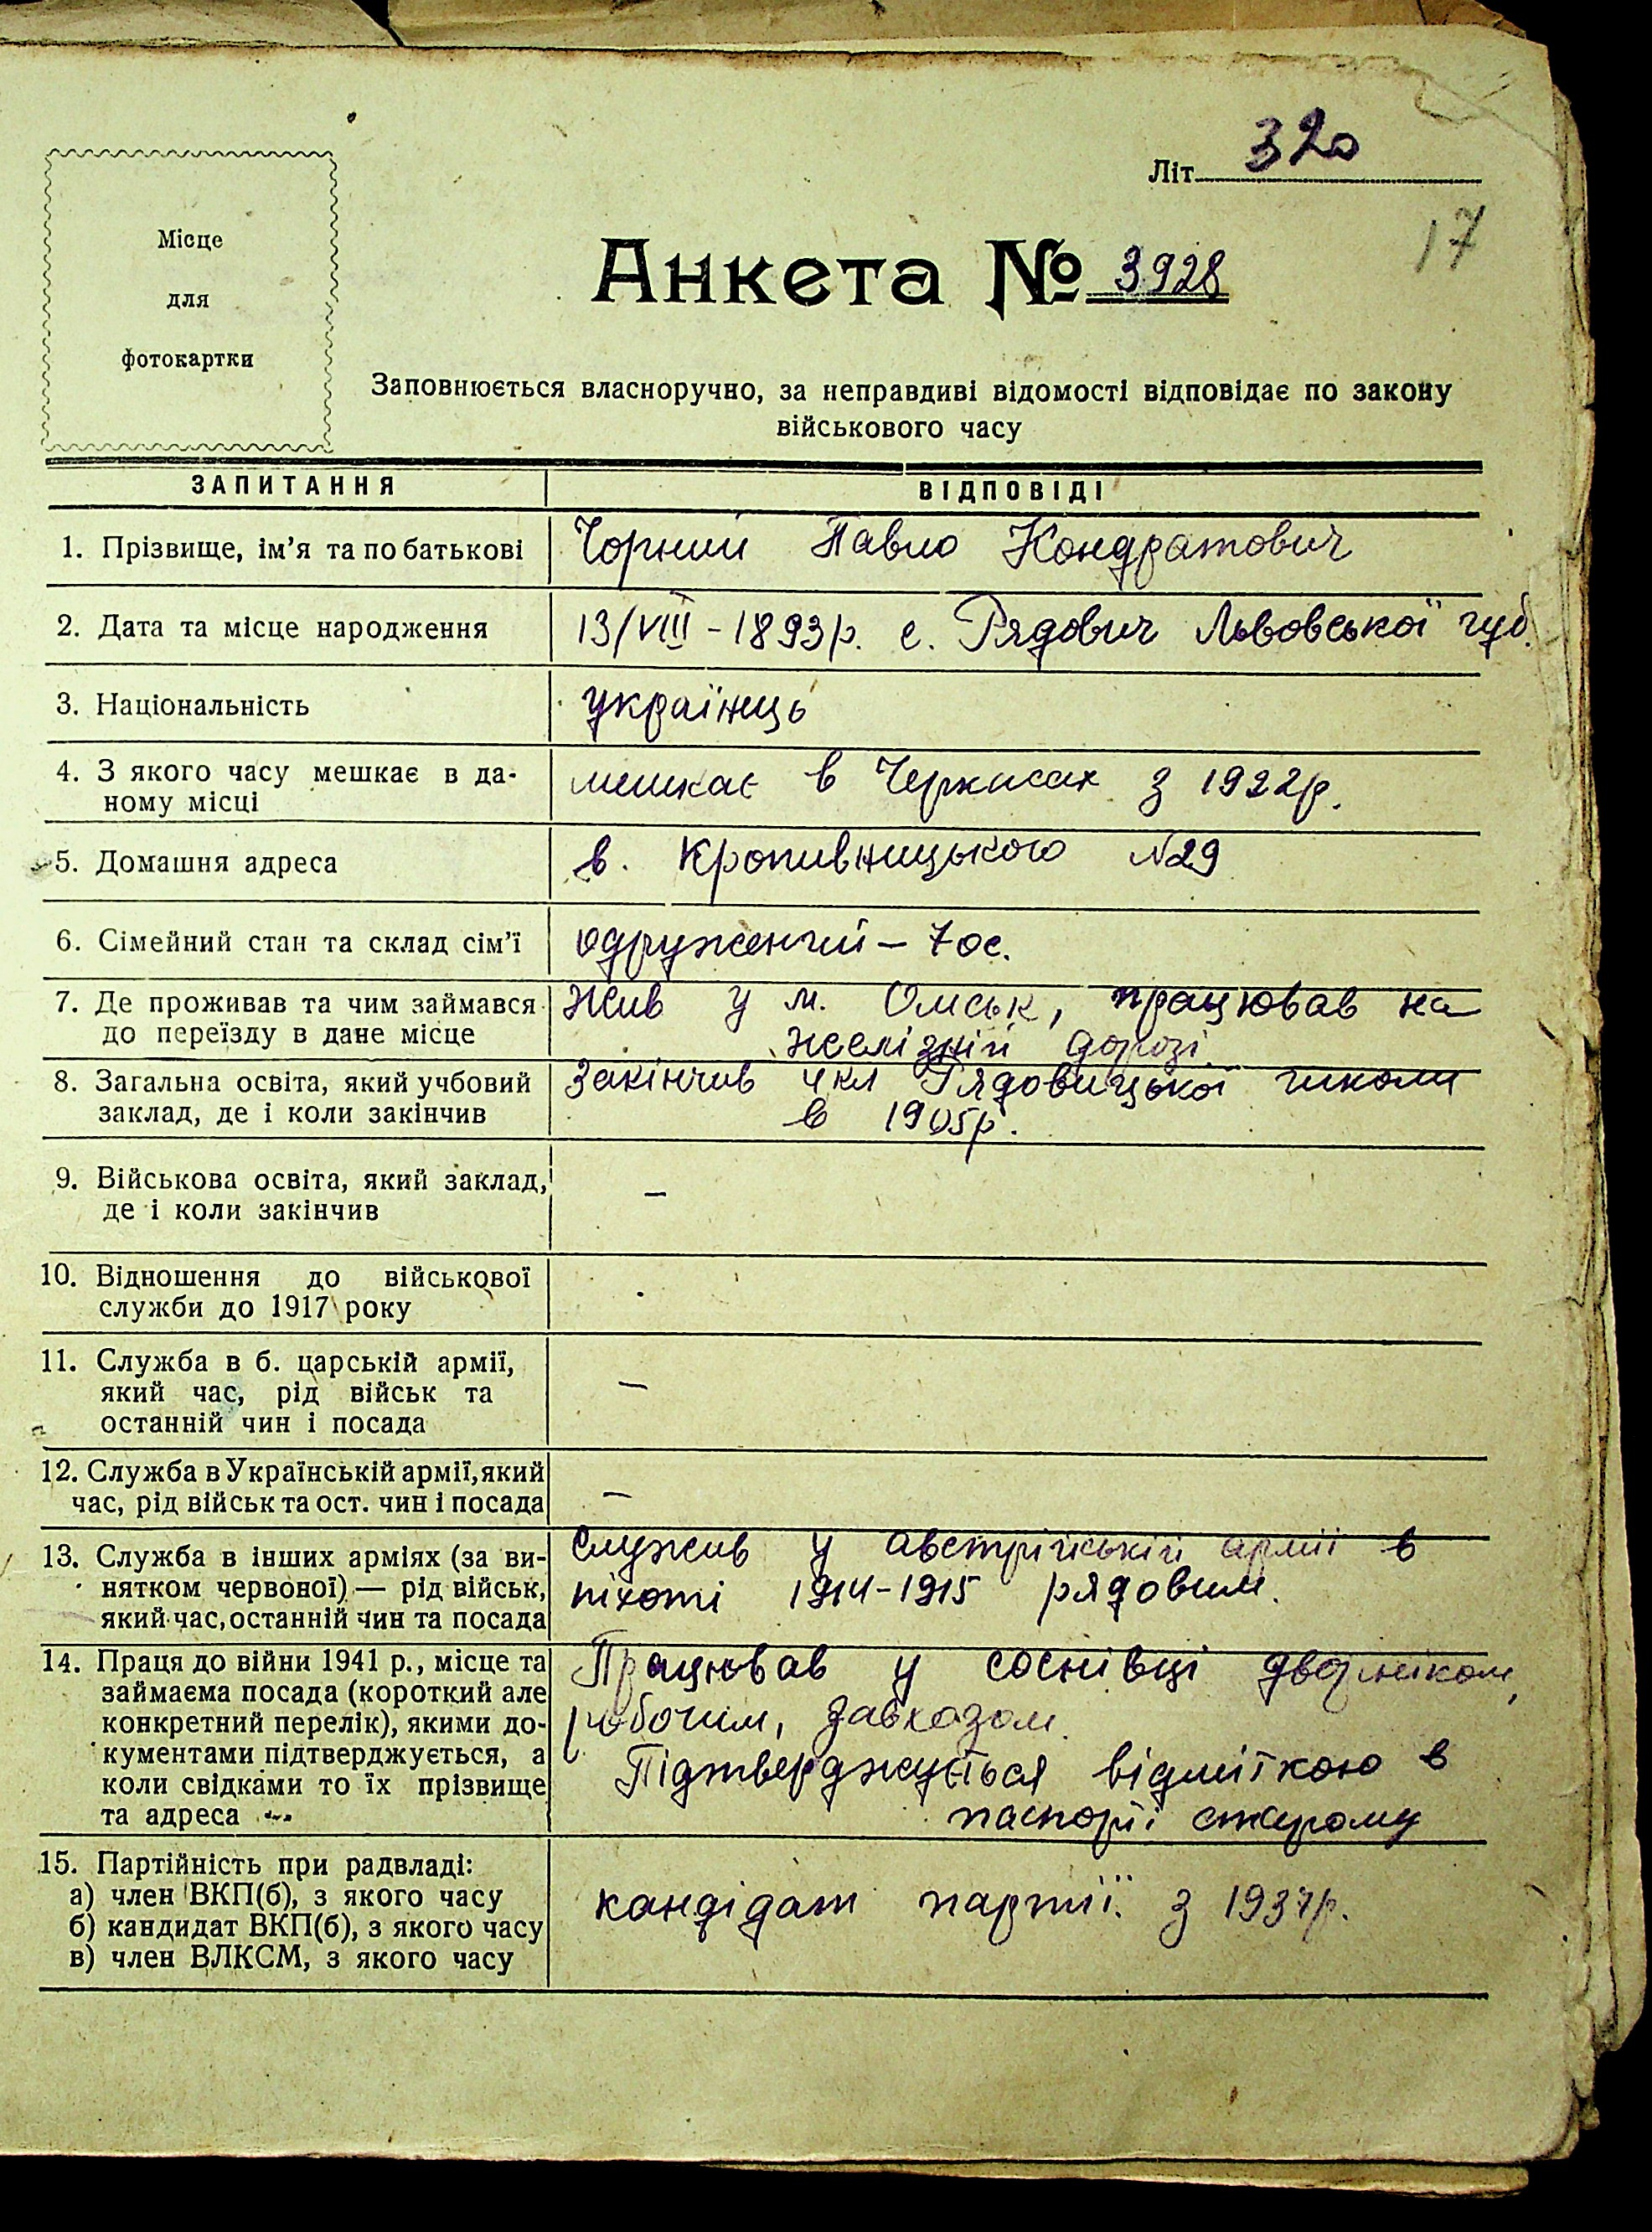 Літ. 320
17
Місце
для
фотокартки
Анкета № 3928
Заповнюється власноручно, за неправдиві відомості відповідає по закону
військового часу
ЗАПИТАННЯ
ВІДПОВІДІ
1. Прізвище, ім'я та по батькові
Чорний Павло Кондратович
2. Дата та місце народження
13/VIII - 1893р. с. Рядович Львовської губ.
3. Національність
українець
4. З якого часу мешкає в да-
ному місці
мешкає в Черкасах з 1922р.
5. Домашня адреса
в. Кропивницького №29
6. Сімейний стан та склад сім'ї
одружений – 7 ос.
7. Де проживав та чим займався
до переїзду в дане місце
Жив у м. Омськ, працював на
желізній дорозі.
8. Загальна освіта, який учбовий
заклад, де і коли закінчив
Закінчив 4 кл Рядовицької школи
в 1905р.
9. Військова освіта, який заклад,
де і коли закінчив
–
10. Відношення до військової
служби до 1917 року
11. Служба в б. царській армії,
який час, рід військ та
останній чин і посада
–
12. Служба в Українській армії, який
час, рід військ та ост. чин і посада
–
13. Служба в інших арміях (за ви-
нятком червоної) — рід військ,
який час, останній чин та посада
Служив у австрійській армії в
піхоті 1914-1915 рядовим.
14. Праця до війни 1941 р., місце та
займаєма посада (короткий але
конкретний перелік), якими до-
кументами підтверджується, а
коли свідками то їх прізвище
та адреса
Працював у соснівці дворніком,
робочим, завхозом.
Підтверджується відміткою в
паспорті старому
15. Партійність при радвладі:
а) член ВКП(б), з якого часу
б) кандидат ВКП(б), з якого часу
в) член ВЛКСМ, з якого часу
кандідат партії з 1937р.